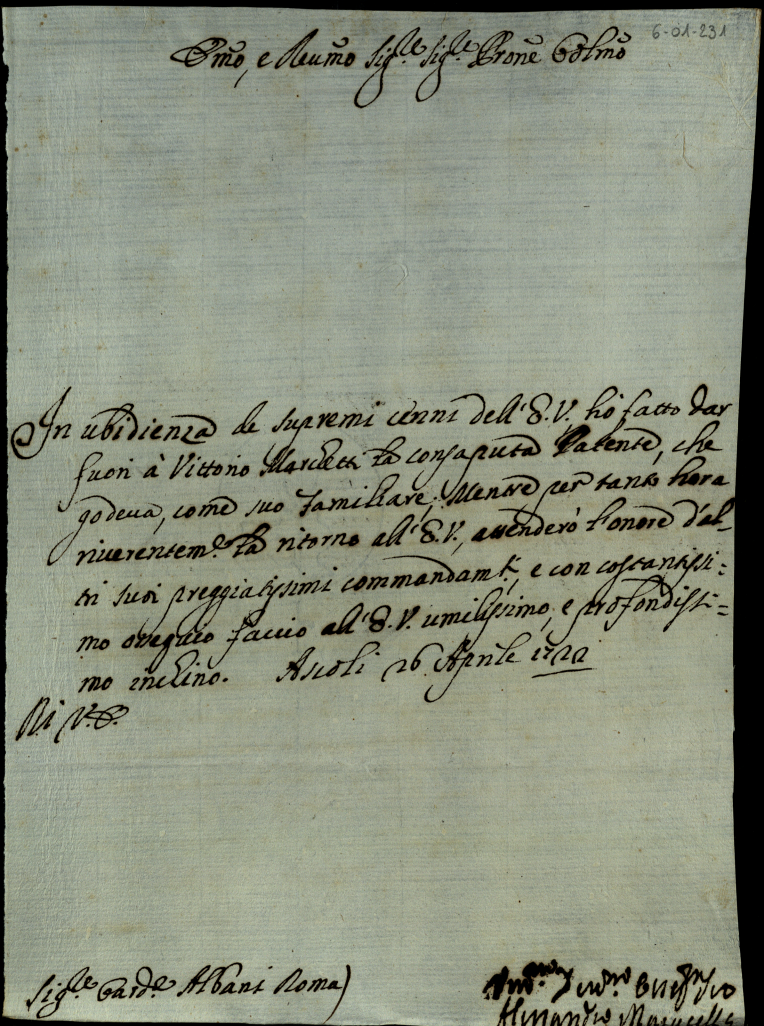 6-01-231
Emõ, e Reumõ Sig.re Sig.re Prone Colmõ
In ubidienza de supremi cenni dell'E.V. hò fatto dar
fuori à Vittorio Marchetti la consaputa Patente, che
godeva, come suo familiare; Mentre per tanto hora
riverentem.e la ritorno all'E.V., attenderò l'onore d'al-
tri suoi preggiatissimi commandam.ti, e con costantissi:
mo ossequio faccio all'E.V. umilissimo, e profondissi=
mo inchino. Ascoli 26 Aprile 1722
Di V.E.
Sig.re Card.e Albani Roma)